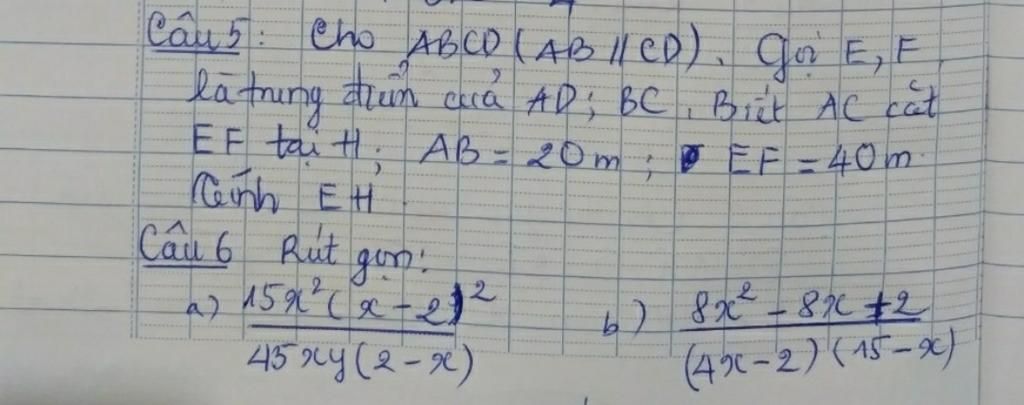 Câu 5: Cho ABCD (AB // CD). Gọi E, F
là trung điểm của AD; BC. Biết AC cắt
EF tại H; AB = 20m; EF = 40m.
Tính EH.
Câu 6 Rút gọn:
a) 15x²(x-2)² / 45xy(2-x) b) 8x² - 8x + 2 / (4x-2)(15-x)